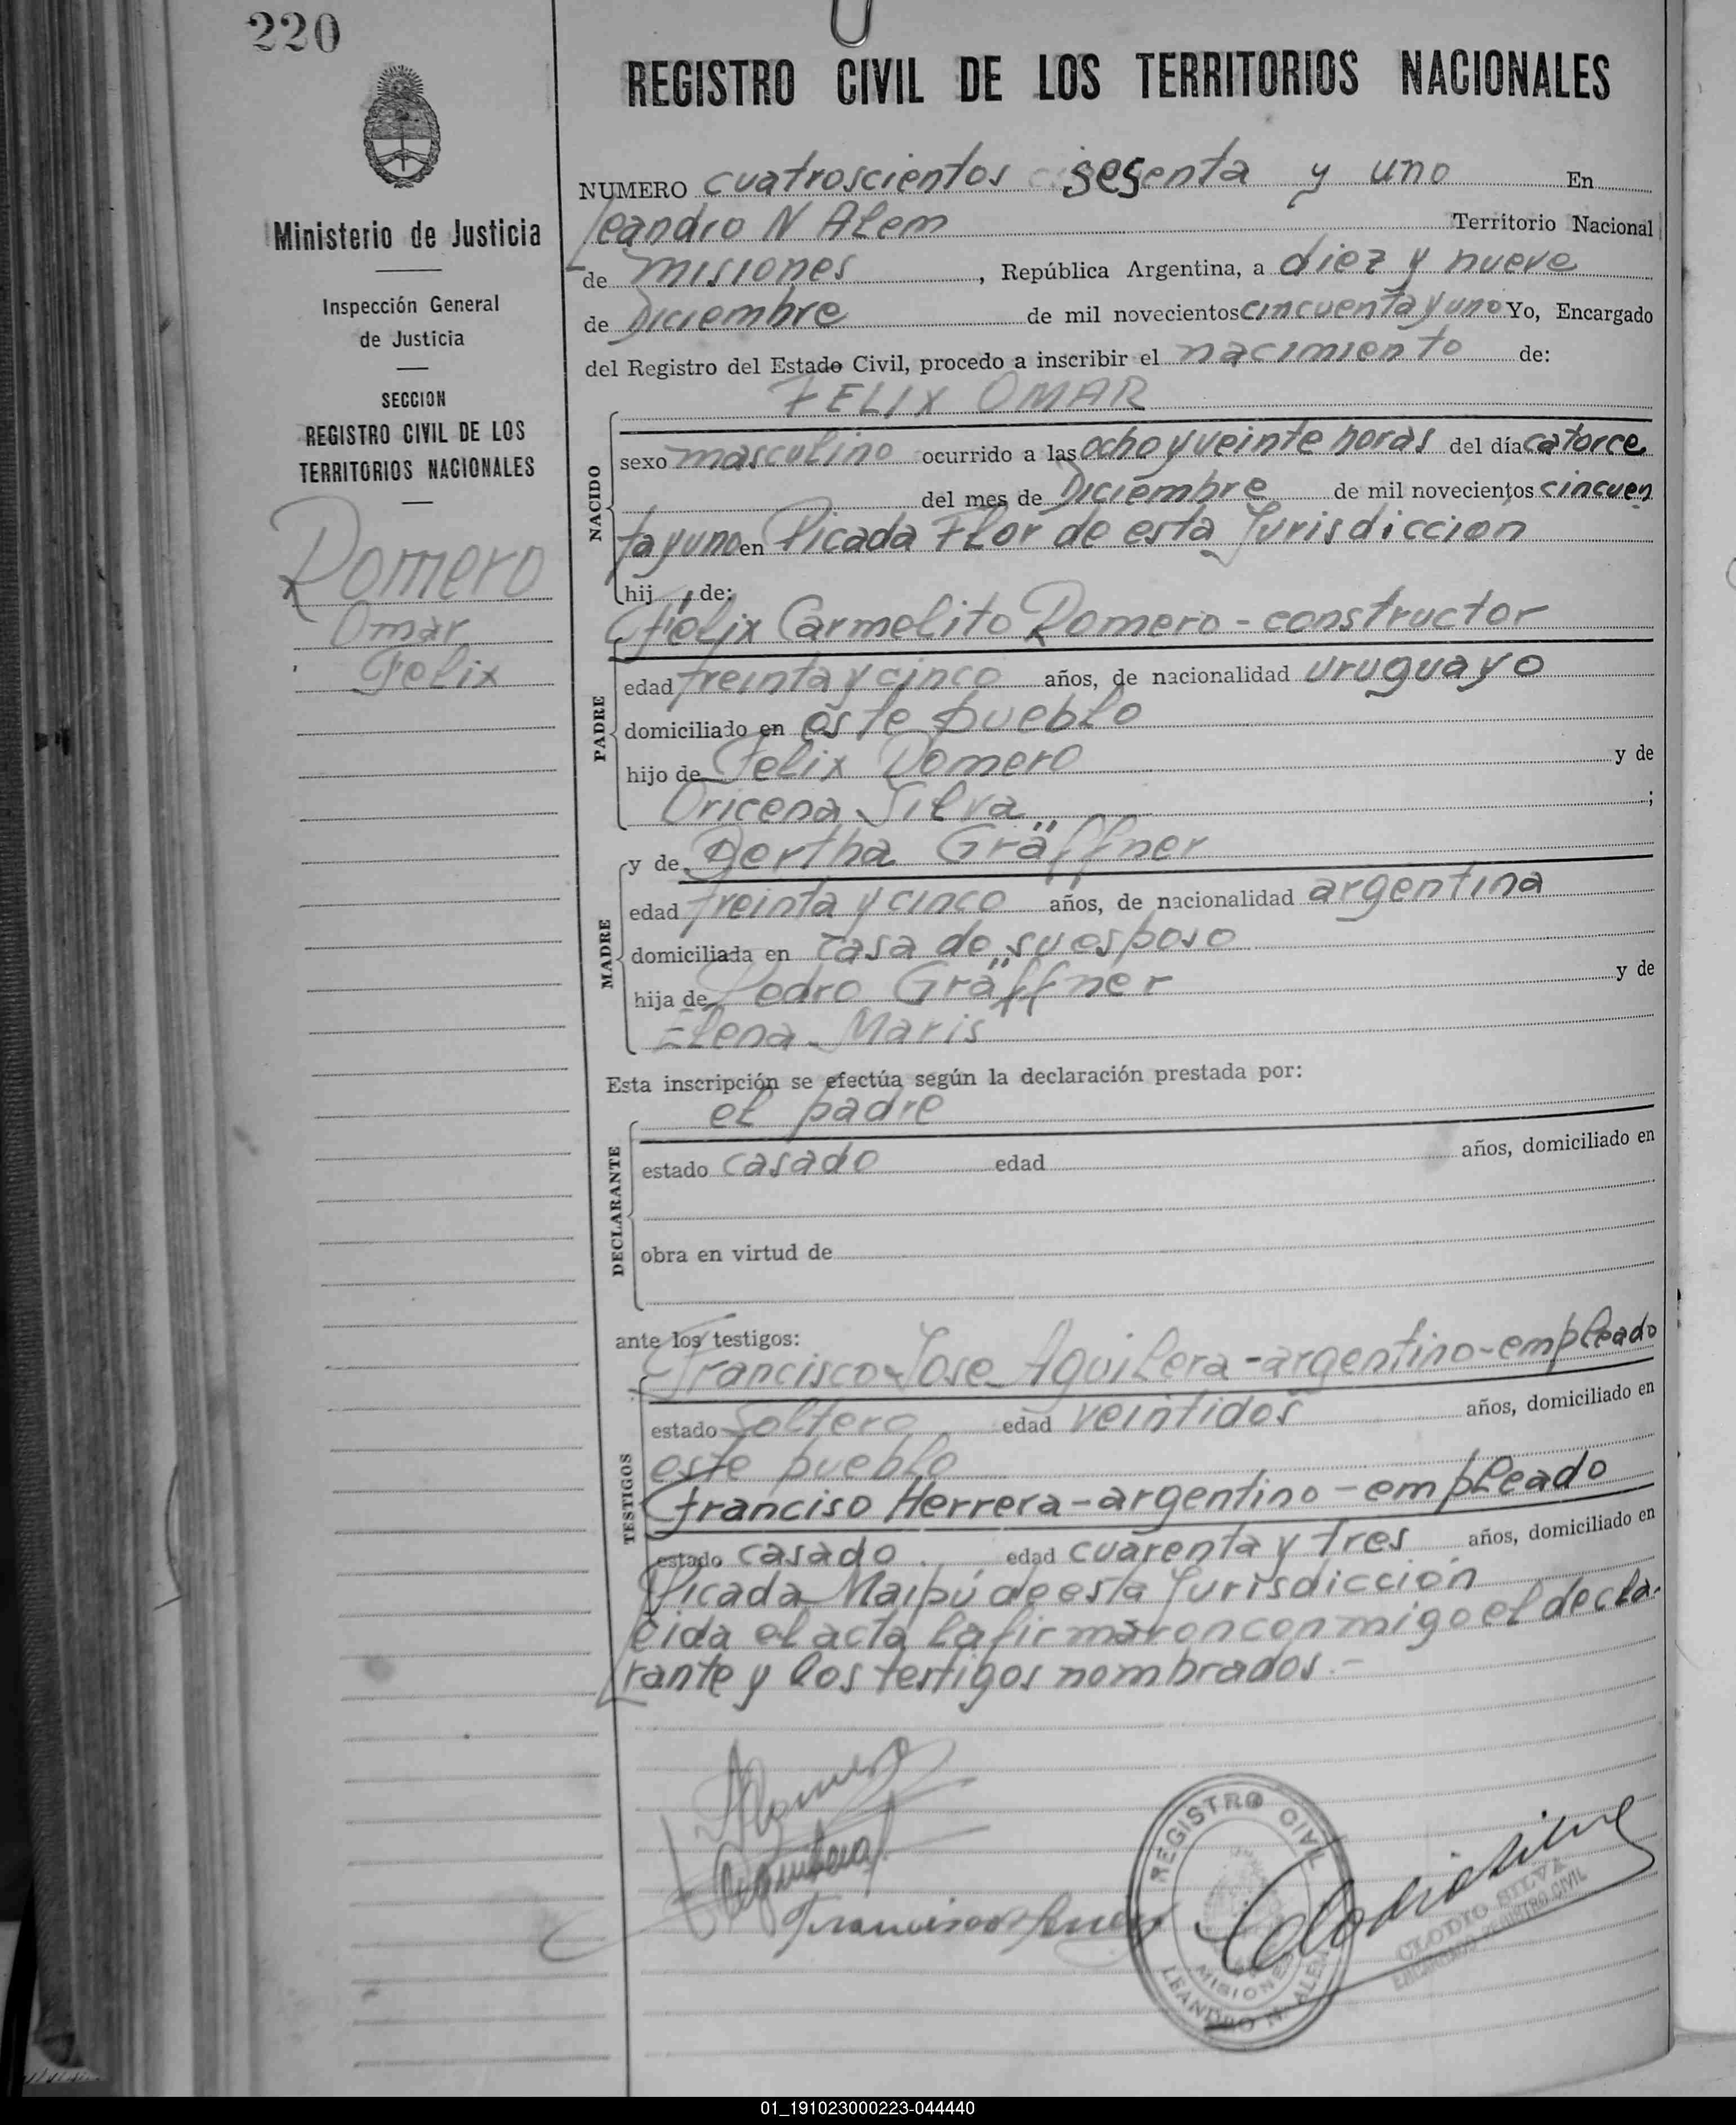 220
REGISTRO CIVIL DE LOS TERRITORIOS NACIONALES
Ministerio de Justicia
Inspección General
de Justicia
SECCION
REGISTRO CIVIL DE LOS
TERRITORIOS NACIONALES
Romero
Omar
Felix
NUMERO cuatroscientos sesenta y uno En
Leandro N Alem Territorio Nacional
de misiones, República Argentina, a diez y nueve
de Diciembre de mil novecientos cincuenta y uno Yo, Encargado
del Registro del Estado Civil, procedo a inscribir el nacimiento de:
FELIX OMAR
NACIDO
sexo masculino ocurrido a las ocho y veinte horas del día catorce
del mes de Diciembre de mil novecientos cincuen
ta y uno en Picada Flor de esta Jurisdiccion
hij, de:
Félix Carmelito Romero - constructor
PADRE
edad treinta y cinco años, de nacionalidad uruguayo
domiciliado en este pueblo
hijo de Felix Romero y de
Oricena Silva;
MADRE
y de Bertha Gräffner
edad treinta y cinco años, de nacionalidad argentina
domiciliada en casa de su esposo
hija de Pedro Gräffner y de
Elena Maris
Esta inscripción se efectúa según la declaración prestada por:
el padre
DECLARANTE
estado casado edad años, domiciliado en
obra en virtud de
ante los testigos:
Francisco Jose Aguilera - argentino - empleado
TESTIGOS
estado Soltero edad veintidos años, domiciliado en
este pueblo
Franciso Herrera - argentino - empleado
estado casado edad cuarenta y tres años, domiciliado en
Picada Maipú de esta Jurisdicción
Leida el acta la firmaron conmigo el decla-
rante y los testigos nombrados.-
Romero
Aguilera
Francisco
REGISTRO CIVIL
MISIONES
LEANDRO N. ALEM
Clodio Silva
CLODIO SILVA
ENCARGADO REGISTRO CIVIL
01_191023000223-044440